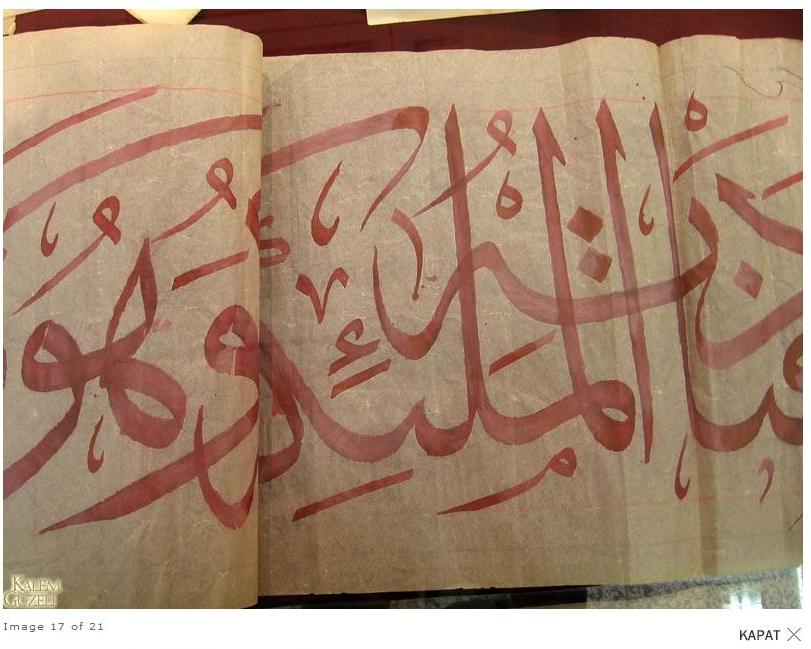 فَنَادَتْهُ الْمَلٰٓئِكَةُ وَهُوَ
KALEM
GUZELI
Image 17 of 21
KAPAT